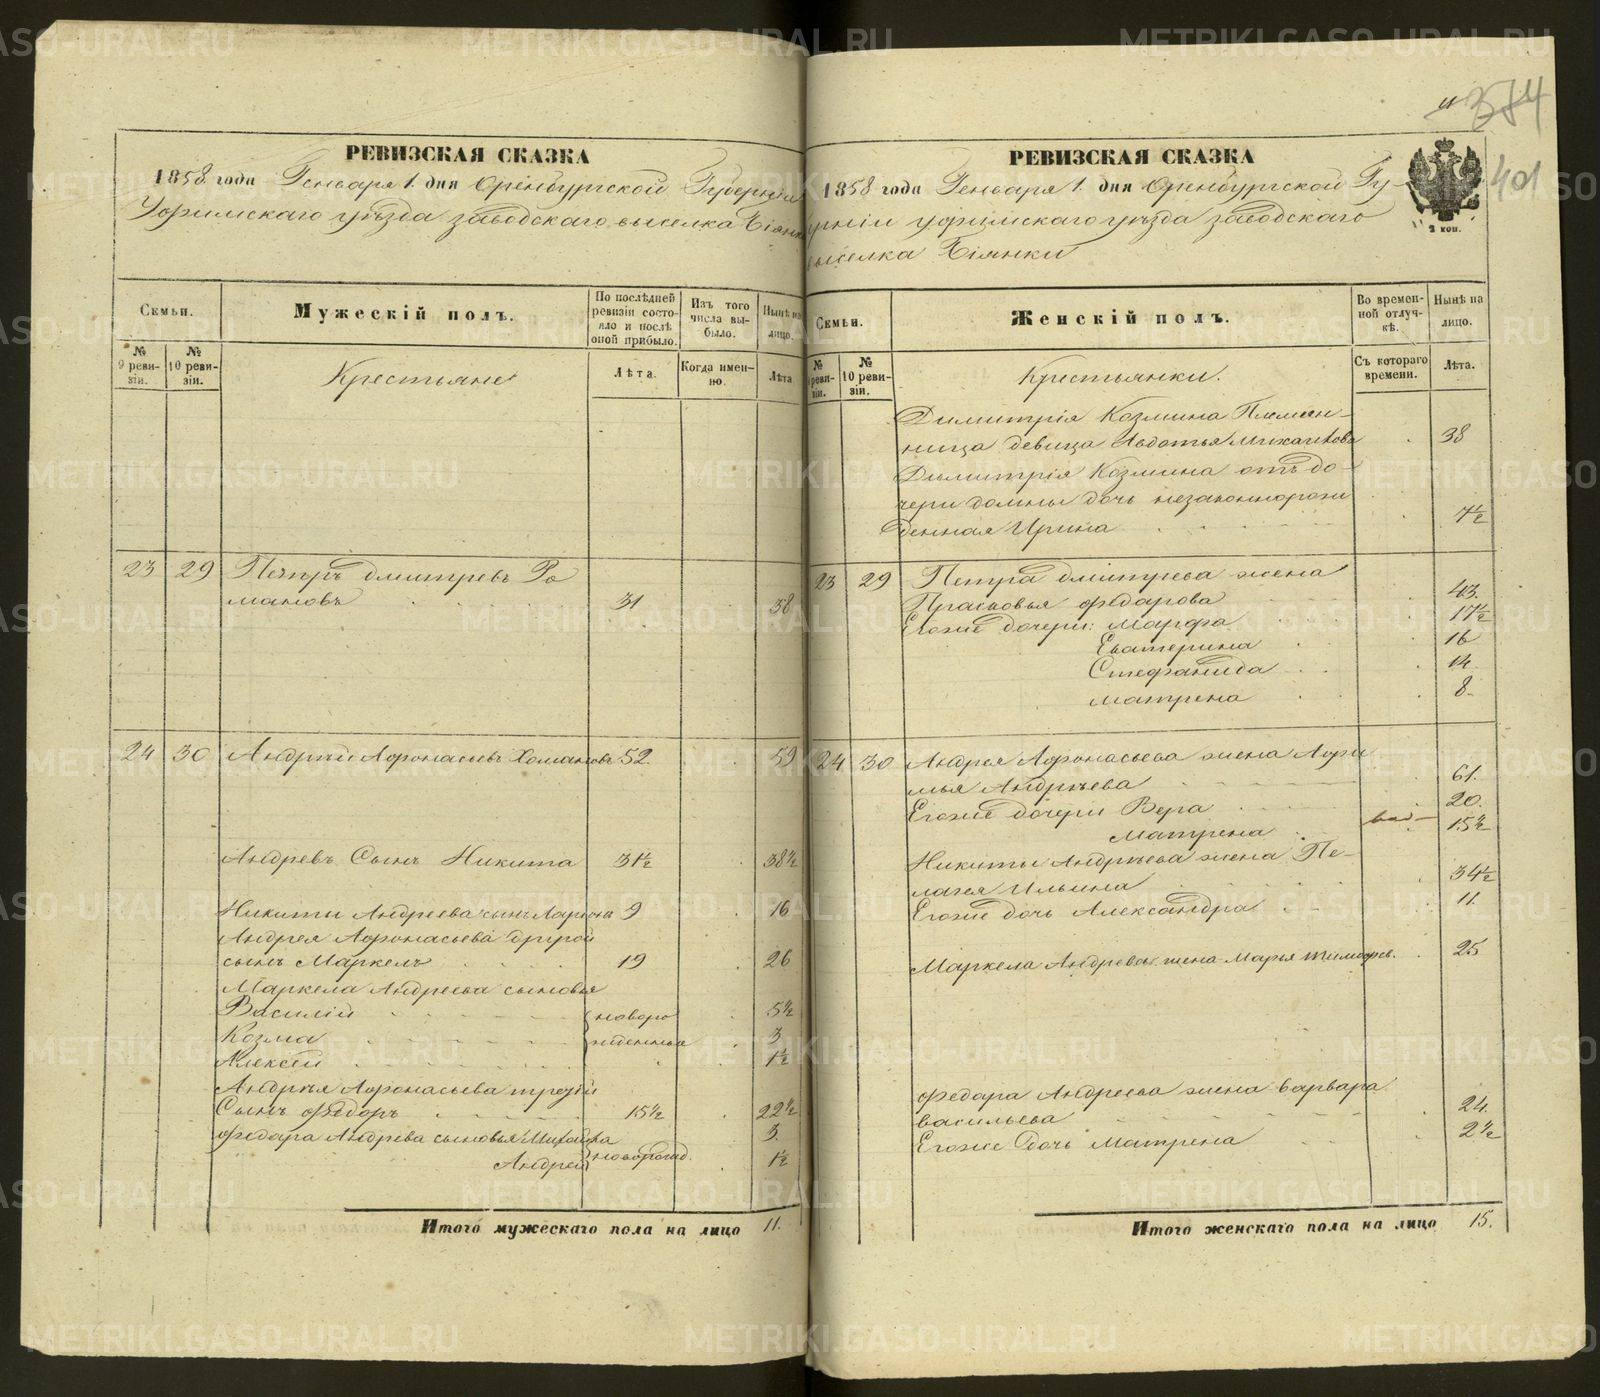 РЕВИЗСКАЯ СКАЗКА
1858 года Генваря 1. дня Оренбургской Губерніи
Уфимскаго уѣзда заводскаго выселка Біянки
Семьи.
Мужескій полъ.
По послѣдней ревизіи состояло и послѣ оной прибыло.
Изъ того числа выбыло.
Нынѣ на лицо.
№ 9 ревизіи.
№ 10 ревизіи.
Крестьяне
Лѣта.
Когда именно.
Лѣта
23 29 Петръ Дмитревъ Ро
мановъ 31 38
24 30 Андрей Афонасьевъ 52. 59
Андревъ Сынъ Никита 31½ 38½
Никиты Андреева сынъ Ларіонъ 9 16
Андрея Афонасьева другой
сынъ Маркелъ 19 26
Маркела Андреева сыновья
Василій новоро 5½
Козма жденные 3
Алексей 1½
Андрея Афонасьева третій
Сынъ Федоръ 15½ 22½
Федара Андрева сыновья Михайла 3.
Андрей новорожд. 1½
Итого мужескаго пола на лицо 11.
374
401
РЕВИЗСКАЯ СКАЗКА
1858 года Генваря 1. дня Оренбургской Гу-
берніи Уфимскаго уѣзда заводскаго
выселка Біянки
2 коп.
Семьи.
Женскій полъ.
Во временной отлучкѣ.
Нынѣ на лицо.
№ 9 ревизіи.
№ 10 ревизіи.
Крестьянки.
Съ котораго времени.
Лѣта.
Димитрія Козмина Племян-
ница девица Авдотья Михайлова 38
Димитрія Козмина отъ до-
чери Домны дочь незаконнорож
денная Ирина 7½
23 29 Петра Дмитрева жена
Прасковья Федарова 43.
Егоже дочери: Марфа 17½
Екатерина 16
Стефанида 14.
Матрена 8.
24 30 Андрея Афонасьева жена
Андреева 61.
Егоже дочери Вера 20.
Матрена 15½
Никиты Андреева жена Пе-
лагея Ильина 34½
Егоже дочь Александра 11.
Маркела Андрева жена Марья Тимофев. 25
Федара Андреева жена Варвара
Васильева 24.
Егоже дочь Матрена 2½
Итого женскаго пола на лицо 15.
METRIKI.GASO-URAL.RU